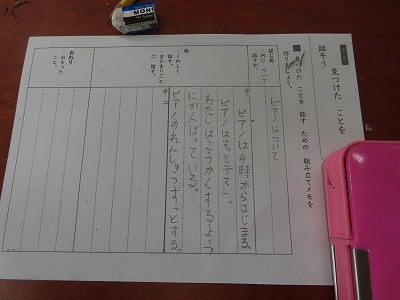 話そう 見つけた ことを
見つけた ことを 話す ための 組み立てメモを
作りましょう。
はじめ
何に ついて
話すか。
ピアノについて
中
くわしく
話す。
まとまりごと
に 話す。
中一 ピアノは4時からはじまる。
ピアノはずっとテスト。
わたしはごうかくするよう
にがんばっている。
中二 ピアノのれんしゅうずっとする。
おわり
・おもった
こと。
MONO